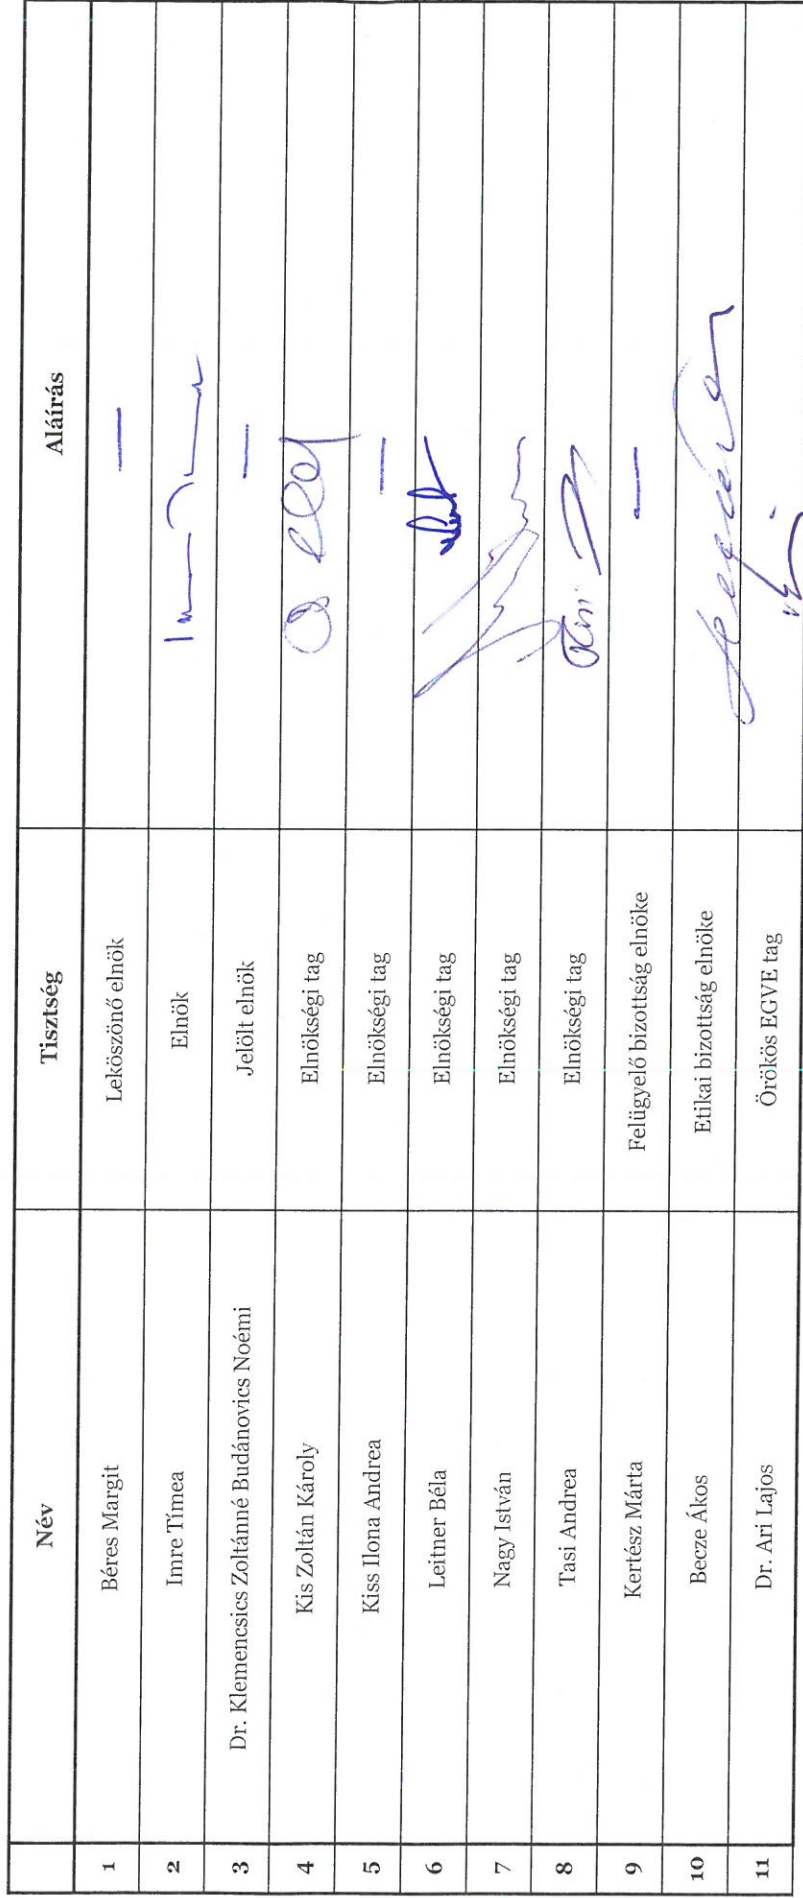 Név Tisztség Aláírás
1 Béres Margit Leköszönő elnök —
2 Imre Tímea Elnök
3 Dr. Klemencsics Zoltánné Budánovics Noémi Jelölt elnök —
4 Kis Zoltán Károly Elnökségi tag
5 Kiss Ilona Andrea Elnökségi tag —
6 Leitner Béla Elnökségi tag
7 Nagy István Elnökségi tag
8 Tasi Andrea Elnökségi tag
9 Kertész Márta Felügyelő bizottság elnöke —
10 Becze Ákos Etikai bizottság elnöke
11 Dr. Ari Lajos Örökös EGVE tag